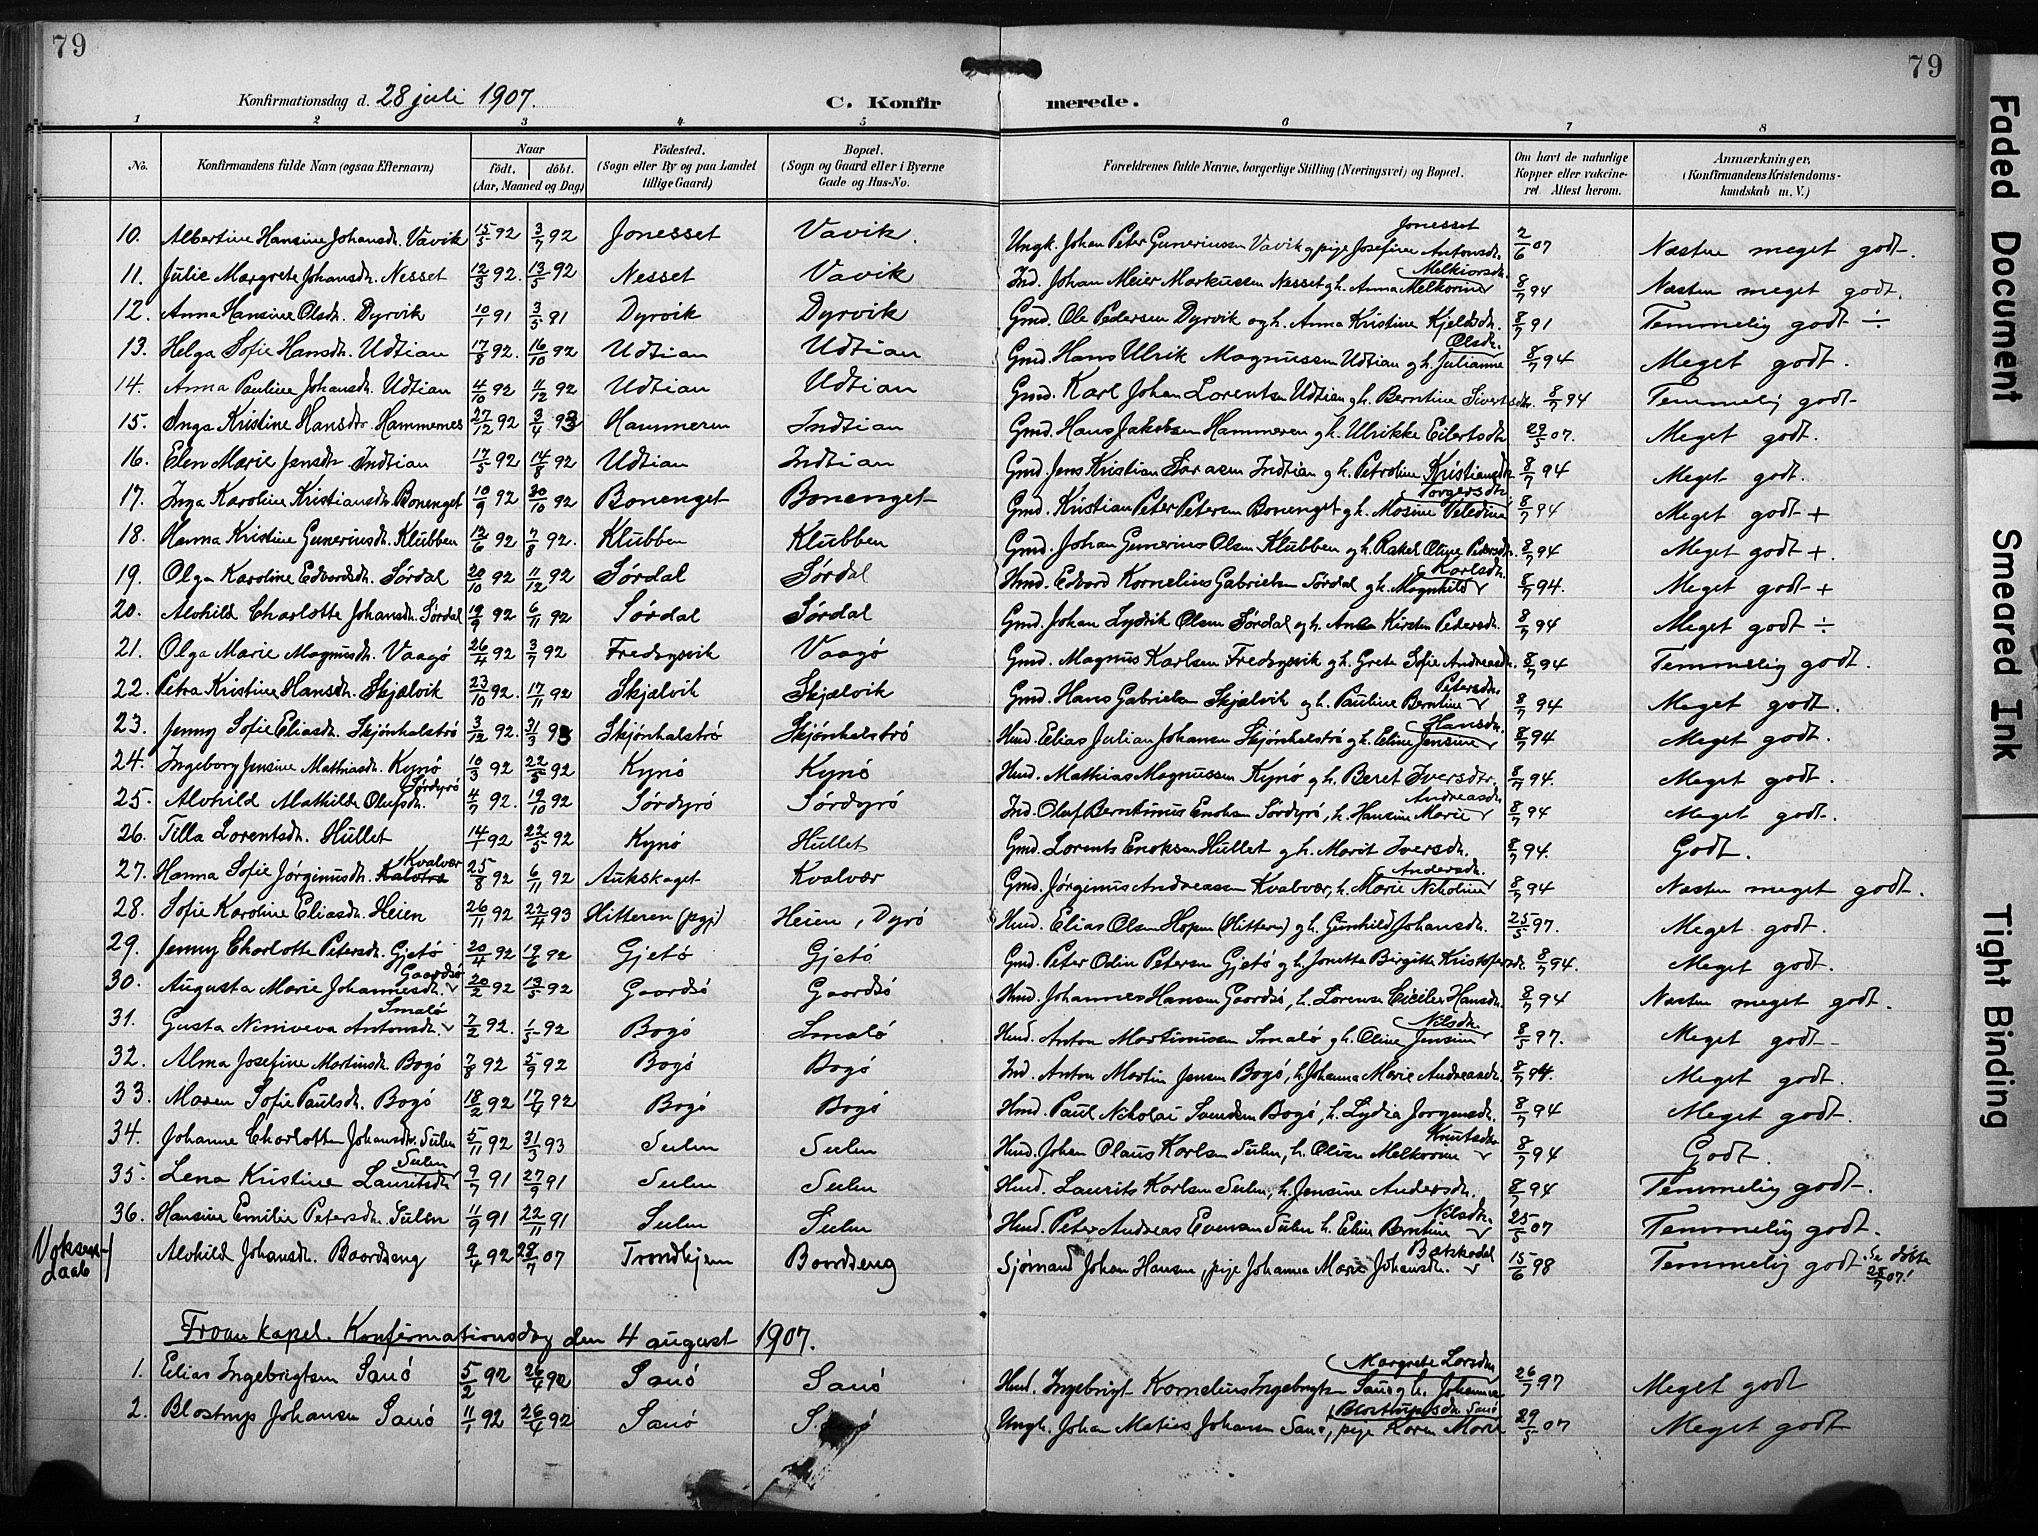 79
79
Konfirmationsdag d. 28 juli 1907.
C. Konfirmerede.
1 2 3 4 5 6 7 8
No. Konfirmandens fulde Navn (ogsaa Efternavn) Naar født. døbt. (Aar, Maaned og Dag) Fødested. (Sogn eller By og paa Landet tillige Gaard) Bopæl. (Sogn og Gaard eller i Byerne Gade og Hus-No. Forældrenes fulde Navne, borgerlige Stilling (Næringsvei) og Bopæl. Om havt de naturlige Kopper eller vakcineret. Attest herom. Anmærkninger. (Konfirmandens Kristendomskundskab m. V.)
10. Albertine Hansine Johansdr. Vavik 15/5 92 3/7 92 Jonesset Vavik. Ungk. Johan Peter Guneriussen Vavik og pige Josefine Antonsdr. Jonesset 2/6 07 Næsten meget godt.
11. Julie Margrete Johansdr. Nesset 12/3 92. 13/5 92 Nesset Vavik Ind. Johan Meier Markussen Nesset gh. Anna Melkorine Melkiorsdr. 8/7 94 Næsten meget godt.
12. Anna Hansine Olsdr. Dyrvik 10/1 91 3/5 91 Dyrvik Dyrvik Gmd. Ole Pedersen Dyrvik og h. Anna Kristine Kjeldsdr. 8/7 91 Temmelig godt ÷
13. Helga Sofie Hansdr. Udtian 17/8 92. 16/10 92 Udtian Udtian Gmd. Hans Ulrik Magnussen Udtian og h. Julianne Olsdr. 8/7 94 Meget godt.
14. Anna Pauline Johansdr. Udtian 4/10 92 11/12 92 Udtian Udtian Gmd. Karl Johan Lorentsen Udtian gh. Berntine Sivertsdtr. 8/7 94 Temmelig godt
15. Inga Kristine Hansdtr. Hammernes 27/12 92 3/4 93 Hammeren Indtian Gmd. Hans Jakobsen Hammeren gh. Ulrikke Eilertsdtr 29/5 07. Meget godt.
16. Elen Marie Jensdr. Indtian 17/5 92 14/8 92 Udtian Indtian Gmd. Jens Kristian Sørasen Indtian gh. Petroline Kristiansdtr 8/7 94 Meget godt.
17. Inga Karoline Kristiansdr. Bonenget 10/9 92 30/10 92 Bonenget Bonenget Gmd. Kristian Peter Petersen Bonenget gh. Mosine Veledine Torgersdr. 8/7 94 Meget godt +
18. Hanna Kristine Guneriusdr. Klubben 12/6 92 7/8 92. Klubben Klubben Gmd. Johan Gunerius Olsen Klubben og h. Rakel Oline Pedersdtr. 8/7 94 Meget godt +.
19. Olga Karoline Edvardsdr. Sørdal 20/10 92 11/12 92 Sørdal Sørdal Hmd. Edvard Kornelius Gabrielsen Sørdal gh. Magnhild Karlsdr. 8/7 94. Meget godt +
20. Alvhild Charlotte Johansdr. Sørdal 19/9 92 6/11 92 Sørdal Sørdal Gmd. Johan Lydrik Olsen Sørdal og h. Anna Kirsten Petersdr. 8/7 94 Meget godt ÷
21. Olga Marie Magnusdr. Vaagø 26/4 92 3/7 92 Fredsysvik Vaagø Gmd. Magnus Karlsen Fredsysvik gh. Grete Sofie Andreasdr. 8/7 94 Temmelig godt.
22. Petra Kristine Hansdr. Skjælvik 23/10 92. 17/11 92 Skjælvik Skjælvik Gmd. Hans Gabrielsen Skjælvik og h. Pauline Berntine Petersdr. 8/7 94 Meget godt.
23. Jenny Sofie Eliasdr. Skjønhalstrø 3/12 92. 31/3 93 Skjønhalstrø Skjønhalstrø Hmd. Elias Julian Johansen Skjønhalstrø gh. Eline Jensine Hansdr. 8/7 94 Meget godt.
24. Ingeborg Jensine Mathiasdr. Kynø 10/3 92 22/5 92 Kynø Kynø Hmd. Mathias Magnussen Kynø gh. Beret Iversdtr. 8/7 94. Meget godt.
25. Alvhild Mathilde Olufsdr. Sørdyrø 4/7 92. 19/10 92 Sørdyrø Sørdyrø Ind. Oluf Berntinus Enoksen Sørdyrø, h. Hansine Marie Andreasdr. 8/7 94 Meget godt.
26. Tilla Lorentsdr. Hullet 14/1 92 22/5 92 Kynø Hullet Gmd. Lorents Enoksen Hullet gh. Marit Iversdr. 8/7 94. Godt.
27. Hanna Sofie Jørginusdr. Kvalvær 25/8 92 6/11 92 Aukskaget Kvalvær Gmd. Jørginus Andreassen Kvalvær, h. Marie Nicoline Andersdr. 8/7 94 Næsten meget godt.
28. Sofie Karoline Eliasdr. Heien 26/11 92 22/4 93 Hitteren (pgj) Heien, Dyrø Hmd. Elias Olsen Hopen (Hitteren) gh. Gunhild Johansdr. 25/5 97. Meget godt.
29. Jenny Charlotte Petersdr. Gjetø 20/4 92 19/6 92 Gjetø Gjetø Gmd. Peter Odin Petersen Gjetø gh. Jonetta Birgitte Kristofersdr 8/7 94. Meget godt.
30. Augusta Marie Johannesdr. Gaardsø 20/2 92 13/5 92 Gaardsø Gaardsø Hmd. Johannes Hansen Gaardsø, h. Lorense Cicilie Hansdr. 8/7 94 Næsten meget godt.
31. Gusta Niniveva Antonsdr. Smalø 7/2 92. 1/5 92 Bogø Smalø Hmd. Anton Martinussen Smalø gh. Oline Jensine Nilsdr. 8/5 97. Meget godt
32. Alma Josefine Martinsdr. Bogø 7/8 92 5/9 92 Bogø Bogø Ind. Anton Martin Jensen Bogø, h. Johanna Marie Andreasdr. 8/7 94. Meget godt.
33. Maren Sofie Paulsdr. Bogø 18/2 92 17/4 92 Bogø Bogø Hmd. Paul Nikolai Svendsen Bogø, h. Lydia Jørgensdr. 8/7 94 Meget godt.
34. Johanne Charlotte Johansdr. Sulen 5/11 92 31/3 93 Sulen Sulen Hmd. Johan Olaus Karlsen Sulen, h. Olise Melkorine Knutsdtr 8/7 94 Godt.
35. Lena Kristine Lauritsdr. Sulen 9/7 91 27/9 91 Sulen Sulen Hmd. Laurits Karlsen Sulen, h. Jensine Andersdr. 8/7 94 Temmelig godt.
36. Hansine Emilie Petersdr. Sulen 11/9 91 22/11 91 Sulen Sulen Hmd. Peter Andreas Evensen Sulen h. Elen Berntine Nilsdr. 25/5 07 Temmelig godt.
Voksen-daab Alvhild Johansdr. Baardseng 9/4 92 28/7 07 Trondhjem Baardseng Sjømand Johan Hansen, pige Johanna Marie Johansdr. Batskadal 15/6 98 Temmelig godt. Se døbte 28/7 07!
Froan kapel. Konfirmationsdag den 4 august 1907.
1. Elias Ingebrigtsen Sauø 5/2 92 26/4 92 Sauø Sauø Hmd. Ingebrigt Kornelius Ingebrigtsen Sauø gh. Johanna Margrete Larsdtr 26/7 97 Meget godt
2. Blostrup Johansen Sauø 11/1 92 26/4 92 Sauø Ungk. Johan Matias Johansen Sauø, pige Karen Marie Blostrupsdr. Sauø 29/5 07 Meget godt
Faded Document
Smeared Ink
Tight Binding